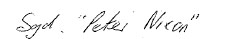 Sgd. "Peter Nixon"